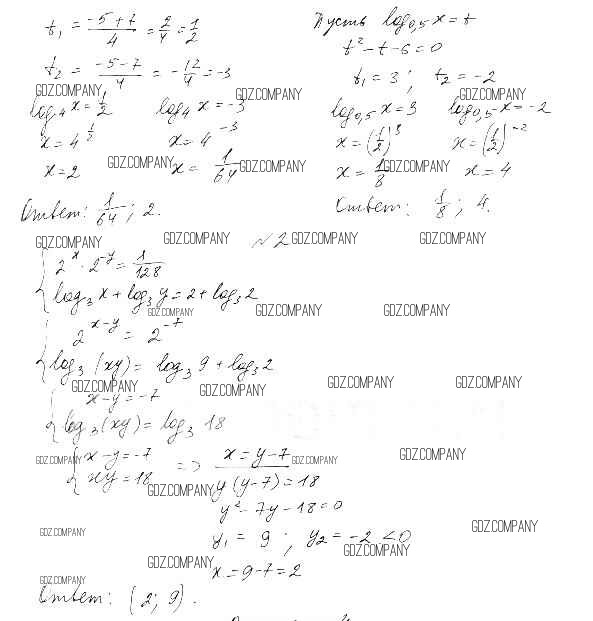 t₁ = (-5+7)/4 = 2/4 = 1/2
t₂ = (-5-7)/4 = -12/4 = -3
GDZ.COMPANY
GDZ.COMPANY
log₄ x = 1/2 log₄ x = -3
x = 4^(1/2) x = 4^(-3)
x = 2 GDZ.COMPANY x = 1/64 GDZ.COMPANY
Ответ: 1/64; 2.
Пусть log₀,₅ x = t
t² - t - 6 = 0
t₁ = 3; t₂ = -2
GDZ.COMPANY
log₀,₅ x = 3 log₀,₅ x = -2
x = (1/2)³ x = (1/2)^(-2)
x = 1/8 GDZ.COMPANY x = 4
Ответ: 1/8; 4.
GDZ.COMPANY GDZ.COMPANY №2 GDZ.COMPANY GDZ.COMPANY
{ 2^x · 2^(-y) = 1/128
log₃ x + log₃ y = 2 + log₃ 2
GDZ.COMPANY GDZ.COMPANY GDZ.COMPANY
{ 2^(x-y) = 2^(-7)
log₃ (xy) = log₃ 9 + log₃ 2
GDZ.COMPANY GDZ.COMPANY GDZ.COMPANY GDZ.COMPANY
{ x - y = -7
log₃ (xy) = log₃ 18
{ x - y = -7 => x = y - 7
GDZ.COMPANY GDZ.COMPANY GDZ.COMPANY
xy = 18 y(y-7) = 18
GDZ.COMPANY
y² - 7y - 18 = 0
GDZ.COMPANY GDZ.COMPANY
y₁ = 9; y₂ = -2 < 0
GDZ.COMPANY
GDZ.COMPANY x = 9 - 7 = 2
GDZ.COMPANY
Ответ: (2; 9).